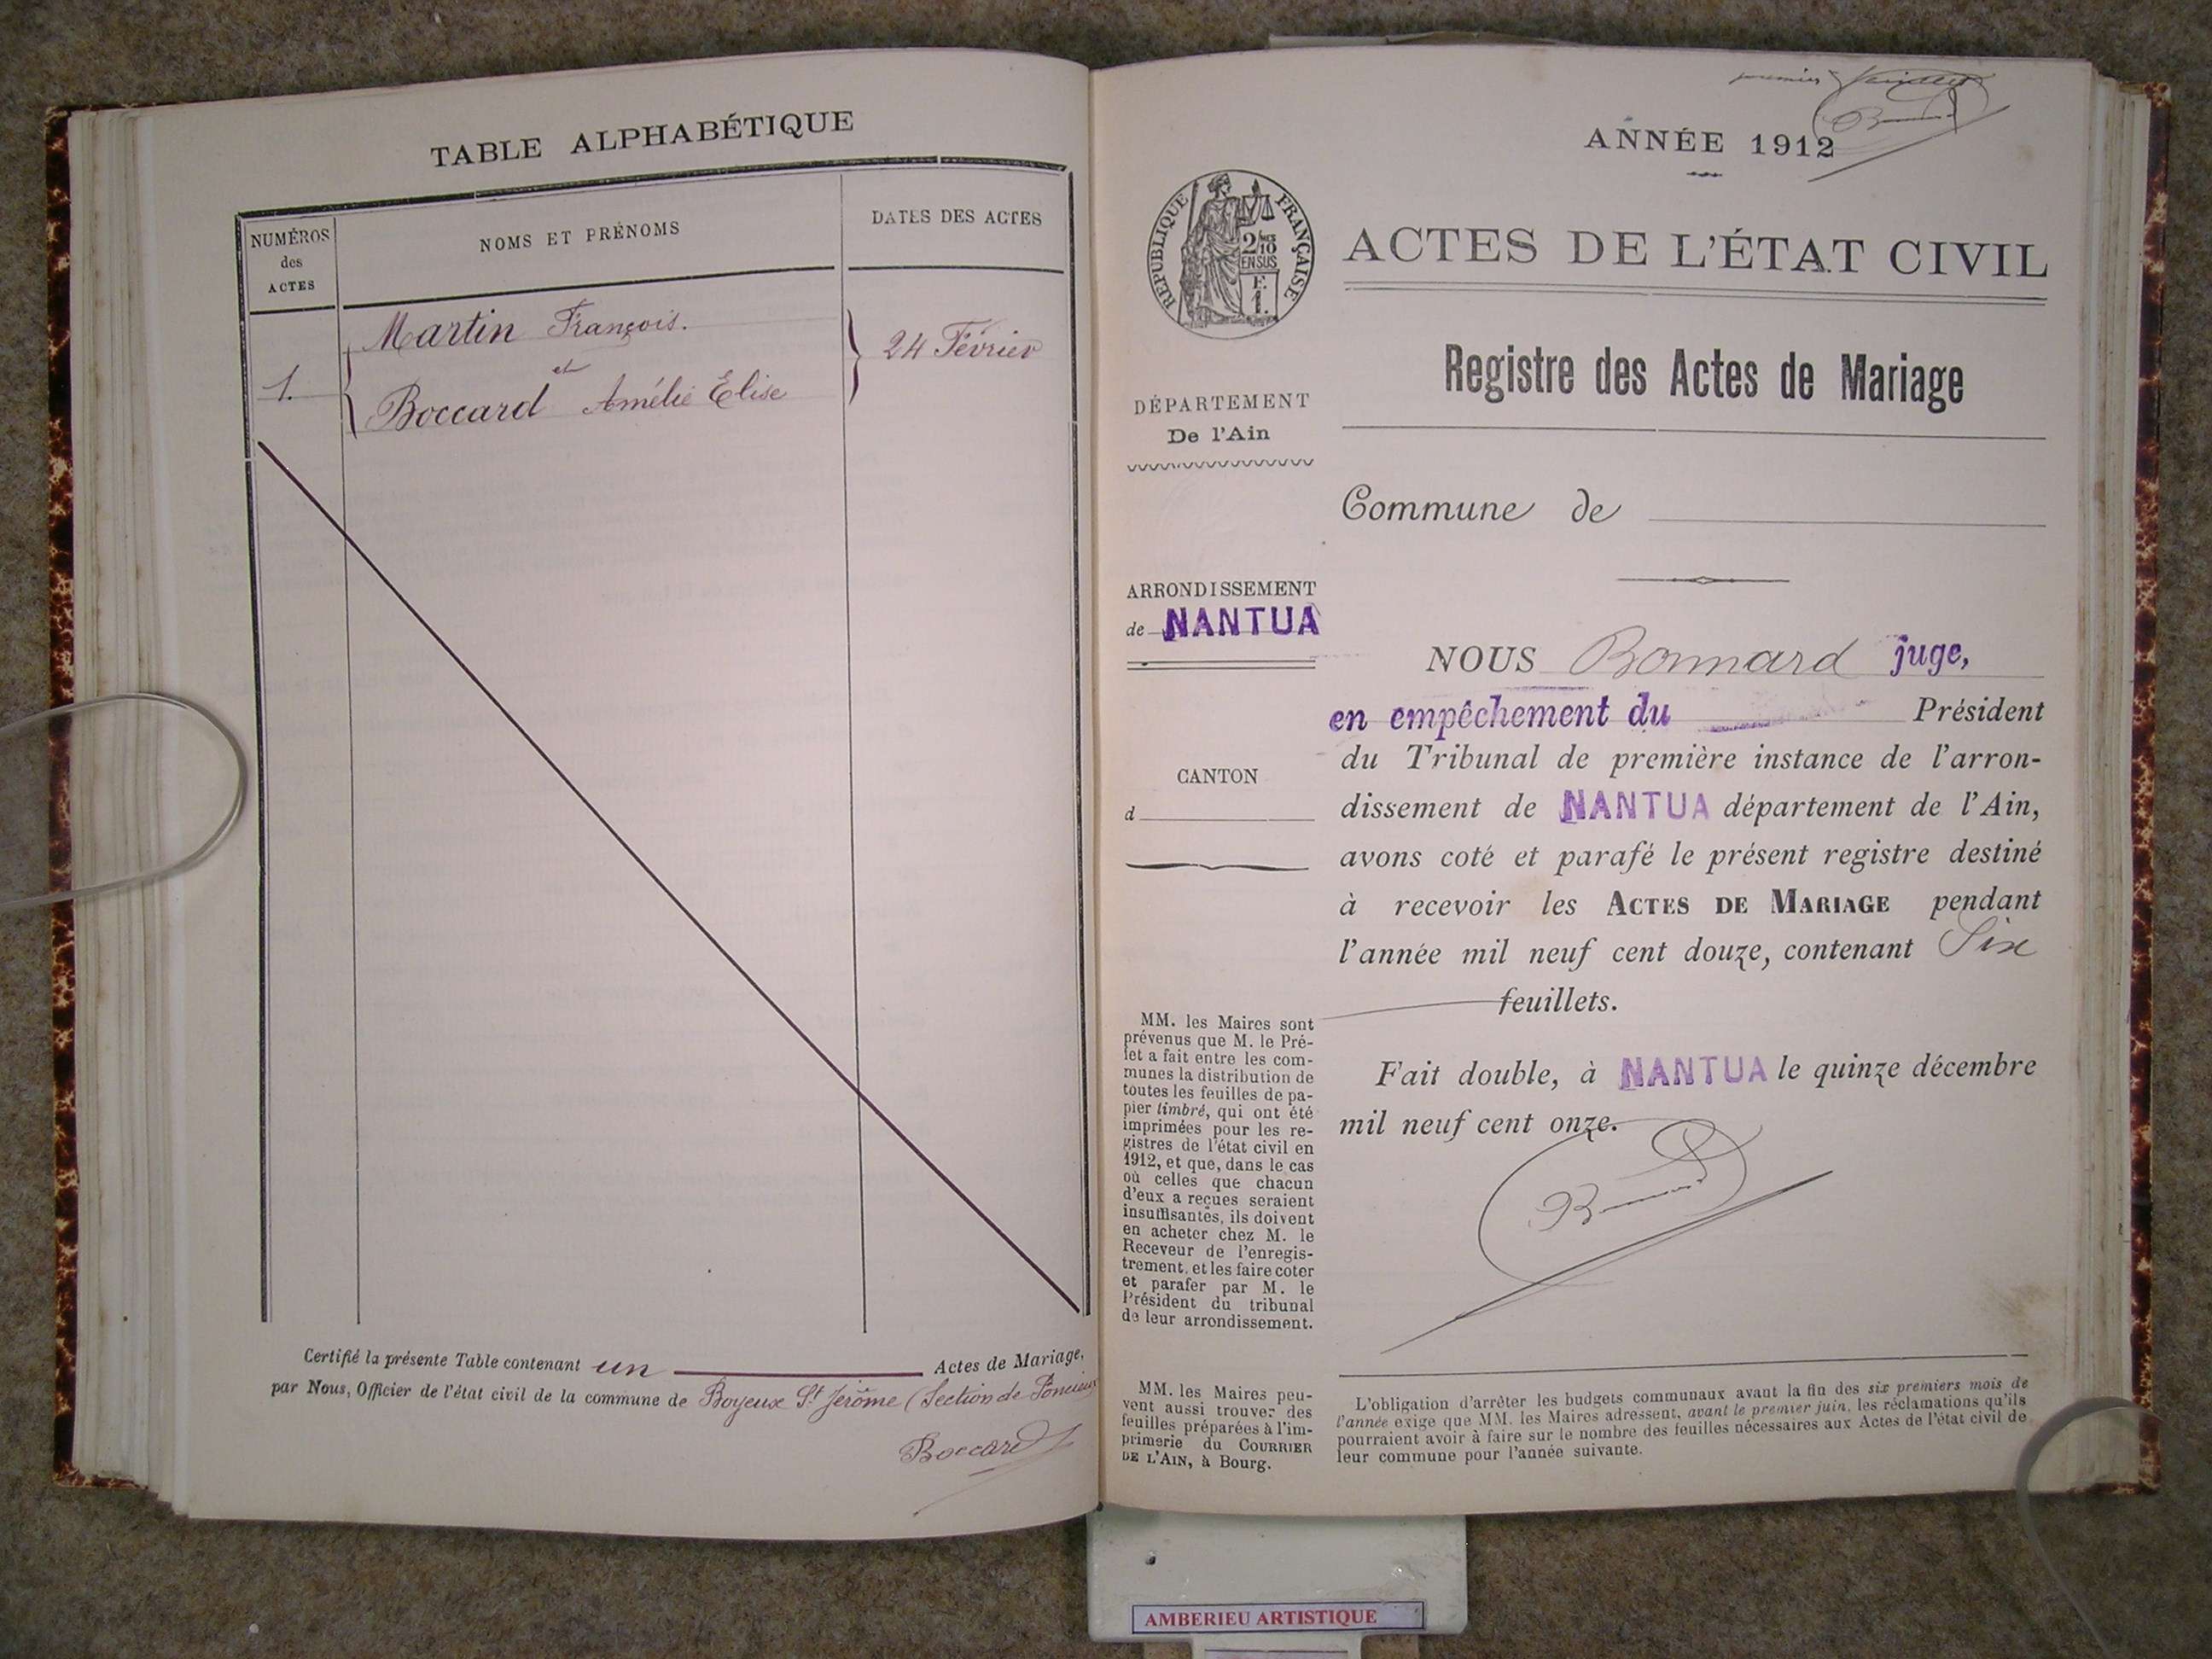 TABLE ALPHABÉTIQUE
NUMÉROS
des
ACTES
NOMS ET PRÉNOMS
DATES DES ACTES
1.
Martin François.
et
Boccard Amélie Elise
24 Février
Certifié la présente Table contenant un Actes de Mariage,
par Nous, Officier de l'état civil de la commune de Boyeux St Jérôme (Section de Poncieux
Boccard
premier feuillet
ANNÉE 1912
RÉPUBLIQUE FRANÇAISE
2/10
EN SUS
F.
1.
ACTES DE L'ÉTAT CIVIL
Registre des Actes de Mariage
DÉPARTEMENT
De l'Ain
Commune de
ARRONDISSEMENT
de NANTUA
CANTON
d
NOUS Bonnard juge,
en empêchement du Président
du Tribunal de première instance de l'arron-
dissement de NANTUA département de l'Ain,
avons coté et parafé le présent registre destiné
à recevoir les ACTES DE MARIAGE pendant
l'année mil neuf cent douze, contenant Six
feuillets.
Fait double, à NANTUA le quinze décembre
mil neuf cent onze.
MM. les Maires sont
prévenus que M. le Pré-
fet a fait entre les com-
munes la distribution de
toutes les feuilles de pa-
pier timbré, qui ont été
imprimées pour les re-
gistres de l'état civil en
1912, et que, dans le cas
où celles que chacun
d'eux a reçues seraient
insuffisantes, ils doivent
en acheter chez M. le
Receveur de l'enregis-
trement, et les faire coter
et parafer par M. le
Président du tribunal
de leur arrondissement.
MM. les Maires peu-
vent aussi trouver des
feuilles préparées à l'im-
primerie du COURRIER
DE L'AIN, à Bourg.
L'obligation d'arrêter les budgets communaux avant la fin des six premiers mois de
l'année exige que MM. les Maires adressent, avant le premier juin, les réclamations qu'ils
pourraient avoir à faire sur le nombre des feuilles nécessaires aux Actes de l'état civil de
leur commune pour l'année suivante.
AMBERIEU ARTISTIQUE